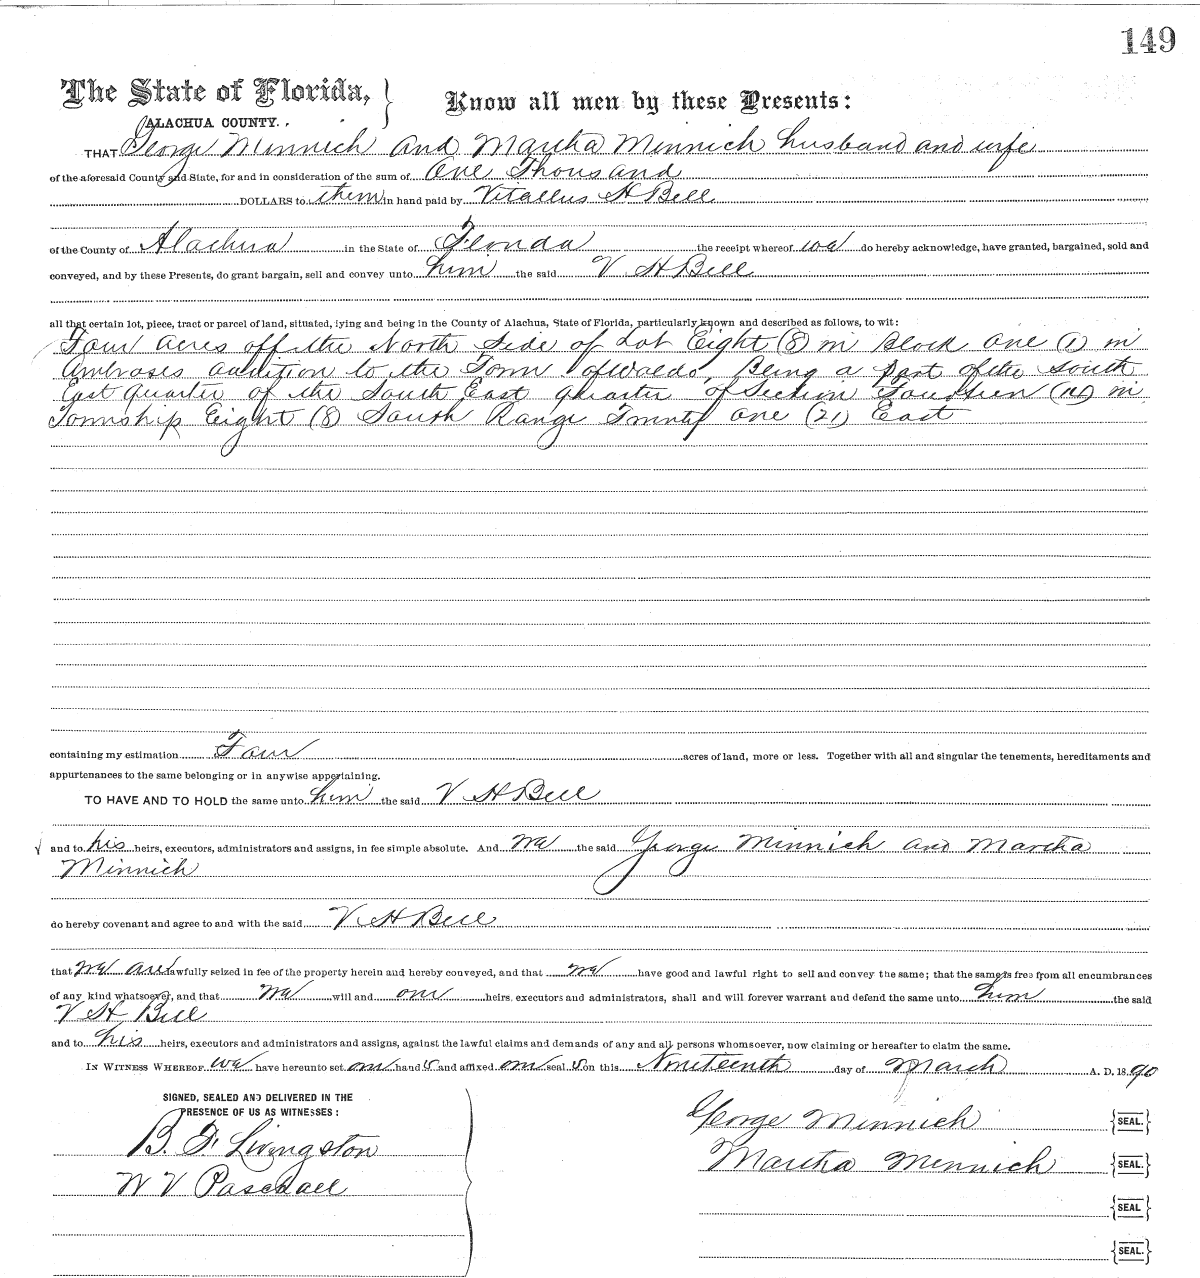 149
The State of Florida,
ALACHUA COUNTY.
Know all men by these Presents:
THAT George Minnich and Martha Minnich husband and wife
of the aforesaid County and State, for and in consideration of the sum of One Thousand
DOLLARS to them in hand paid by Vitallus H Bell
of the County of Alachua in the State of Florida the receipt whereof we do hereby acknowledge, have granted, bargained, sold and
conveyed, and by these Presents, do grant bargain, sell and convey unto him the said V H Bell
all that certain lot, piece, tract or parcel of land, situated, lying and being in the County of Alachua, State of Florida, particularly known and described as follows, to wit:
Four acres off the North Side of Lot Eight (8) in Block one (1) in
Ambroses addition to the Town of Waldo, Being a part of the South
East Quarter of the South East quarter of Section Fourteen (14) in
Township Eight (8) South Range Twenty one (21) East
containing my estimation Four acres of land, more or less. Together with all and singular the tenements, hereditaments and
appurtenances to the same belonging or in anywise appertaining.
TO HAVE AND TO HOLD the same unto him the said V H Bell
and to his heirs, executors, administrators and assigns, in fee simple absolute. And we the said George Minnich and Martha
Minnich
do hereby covenant and agree to and with the said V H Bell
that we are lawfully seized in fee of the property herein and hereby conveyed, and that we have good and lawful right to sell and convey the same; that the same is free from all encumbrances
of any kind whatsoever, and that we will and our heirs, executors and administrators, shall and will forever warrant and defend the same unto him the said
V H Bell
and to his heirs, executors and administrators and assigns, against the lawful claims and demands of any and all persons whomsoever, now claiming or hereafter to claim the same.
IN WITNESS WHEREOF we have hereunto set our hand s and affixed our seal s on this Nineteenth day of March A. D. 1890
SIGNED, SEALED AND DELIVERED IN THE
PRESENCE OF US AS WITNESSES:
B. F. Livingston
W V Paschall
George Minnich {SEAL.}
Martha Minnich {SEAL.}
{SEAL}
{SEAL.}